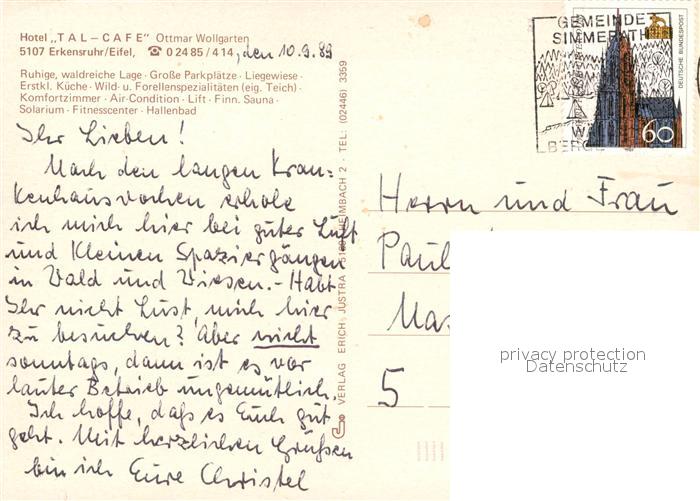 Hotel „TAL-CAFE" Ottmar Wollgarten
5107 Erkensruhr/Eifel, ☎ 0 24 85 / 414, den 10.9.89
Ruhige, waldreiche Lage · Große Parkplätze · Liegewiese ·
Erstkl. Küche · Wild- u. Forellenspezialitäten (eig. Teich) ·
Komfortzimmer · Air-Condition · Lift · Finn. Sauna ·
Solarium · Fitnesscenter · Hallenbad
Ihr Lieben!
Nach den langen Kran=
kenhauswochen erhole
ich mich hier bei guter Luft
und kleinen Spaziergängen
in Wald und Wiesen. - Habt
Ihr nicht Lust, mich hier
zu besuchen? Aber nicht
sonntags, dann ist es vor
lauter Betrieb ungemütlich.
Ich hoffe, daß es Euch gut
geht. Mit herzlichen Grüßen
bin ich Eure Christel
VERLAG ERICH JUSTRA · HEIMBACH 2 · TEL.: (02446) 3359
GEMEINDE
SIMMERATH
DEUTSCHE BUNDESPOST
60
Herrn und Frau
Paul
5
privacy protection
Datenschutz